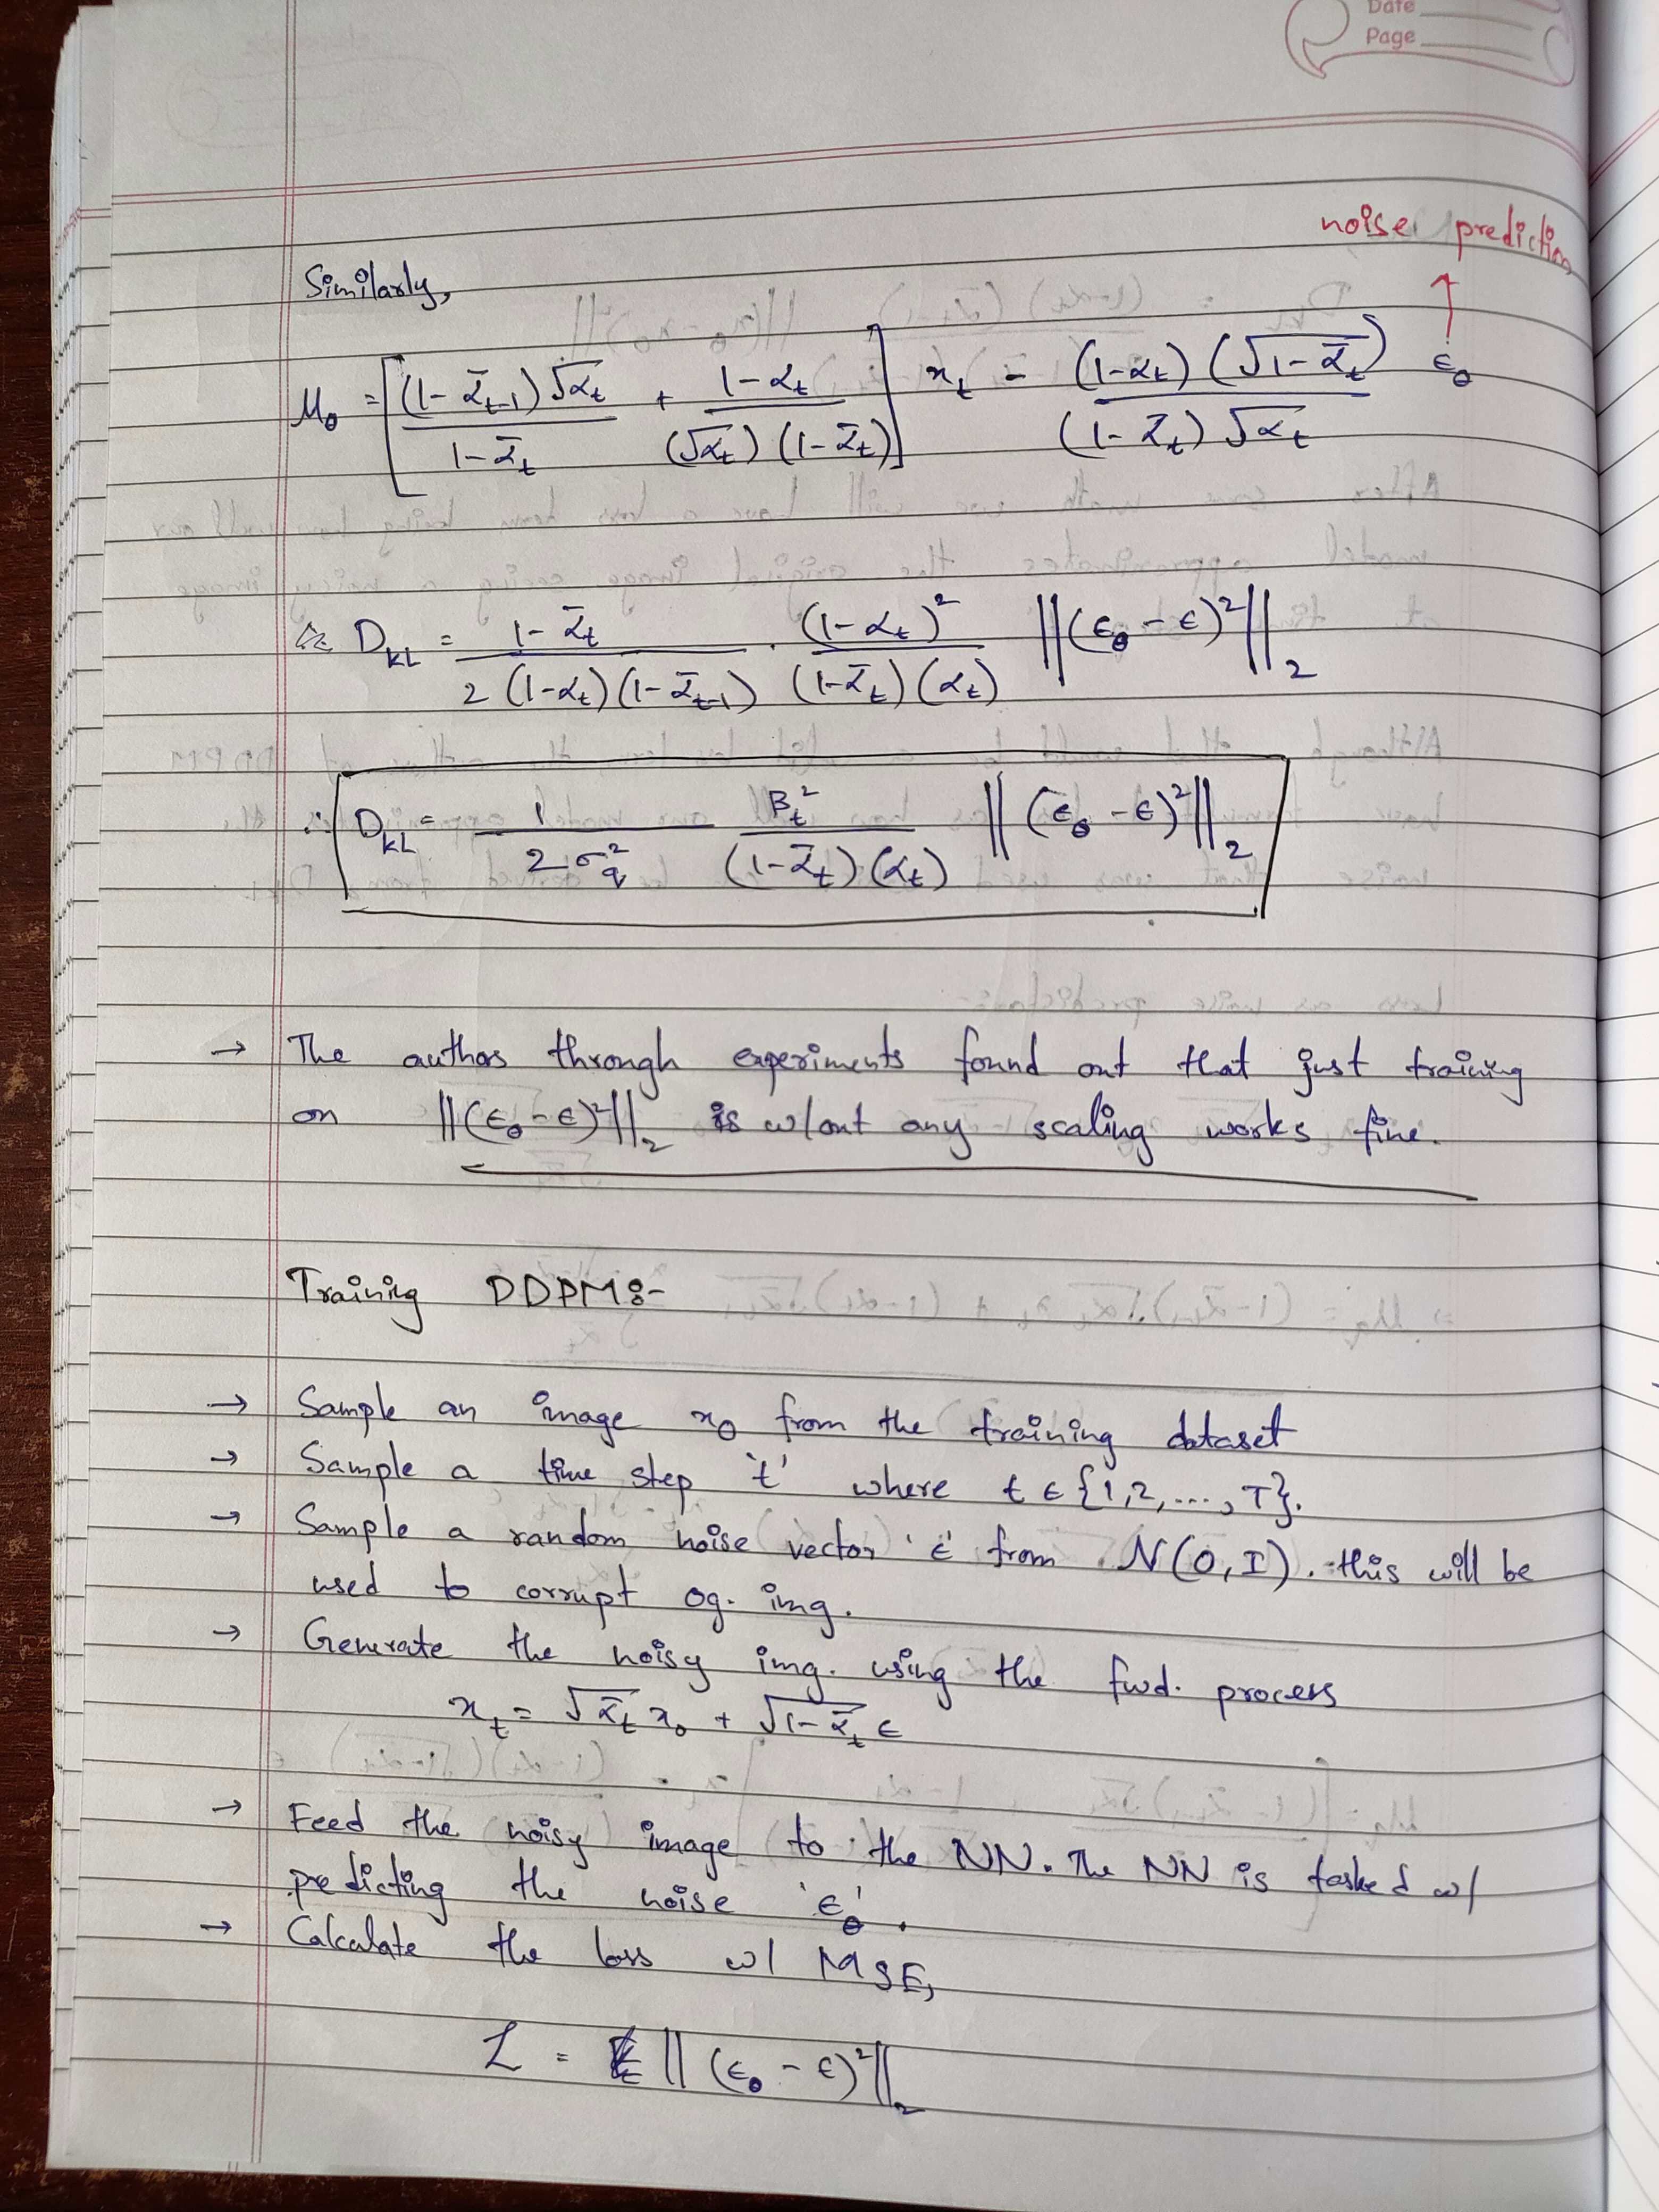 Date
Page
noise prediction
Similarly,
μ_θ = [ (1-ᾱ_{t-1})√α_t / 1-ᾱ_t + 1-α_t / (√α_t)(1-ᾱ_t) ] x_t - (1-α_t)(√1-ᾱ_t) / (1-ᾱ_t)√α_t ε_θ
∴ D_KL = 1-ᾱ_t / 2(1-α_t)(1-ᾱ_{t-1}) · (1-α_t)² / (1-ᾱ_t)(α_t) ||(ε_θ - ε)²||_2
∴ D_KL = 1 / 2σ_q² β_t² / (1-ᾱ_t)(α_t) ||(ε_θ - ε)²||_2
→ The author through experiments found out that just training
on ||(ε_θ - ε)²||_2 is w/out any scaling works fine.
Training DDPM:-
→ Sample an image x_0 from the training dataset
→ Sample a time step 't' where t ∈ {1,2,...,T}.
→ Sample a random noise vector 'ε' from N(0,I). this will be
used to corrupt og. img.
→ Generate the noisy img. using the fwd. process
x_t = √ᾱ_t x_0 + √1-ᾱ_t ε
→ Feed the noisy image to the NN. The NN is tasked w/
predicting the noise 'ε_θ'.
→ Calculate the loss w/ MSE,
L = ||(ε_θ - ε)²||_2